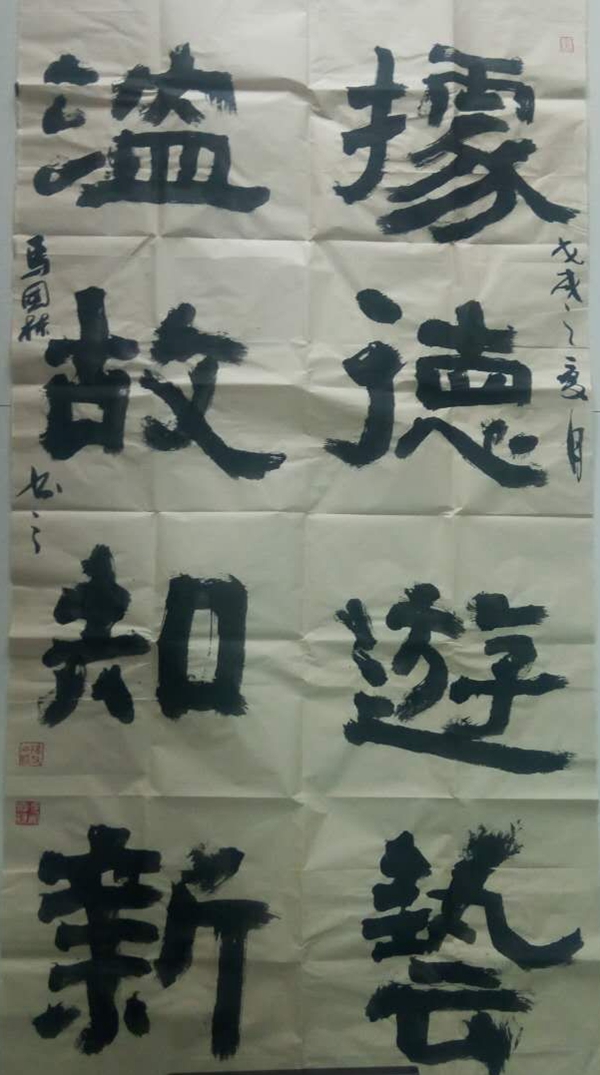 戊戌之夏月
據德遊藝
溫故知新
馬国林书之